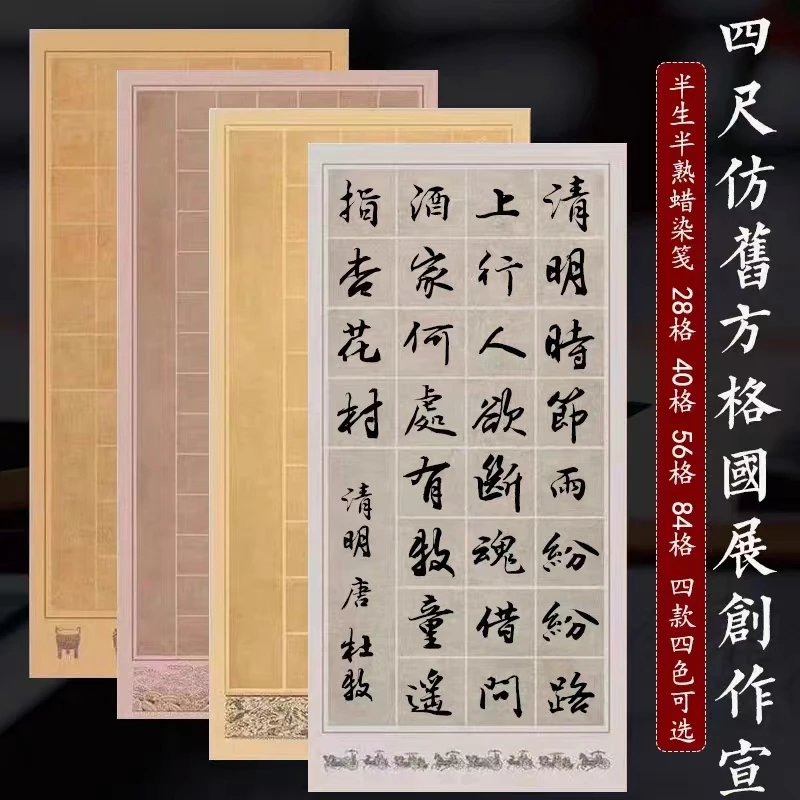 四尺仿舊方格國展創作宣
半生半熟蜡染笺 28格 40格 56格 84格 四款四色可选
清明時節雨紛紛路
上行人欲斷魂借問
酒家何處有牧童遙
指杏花村
清明唐杜牧